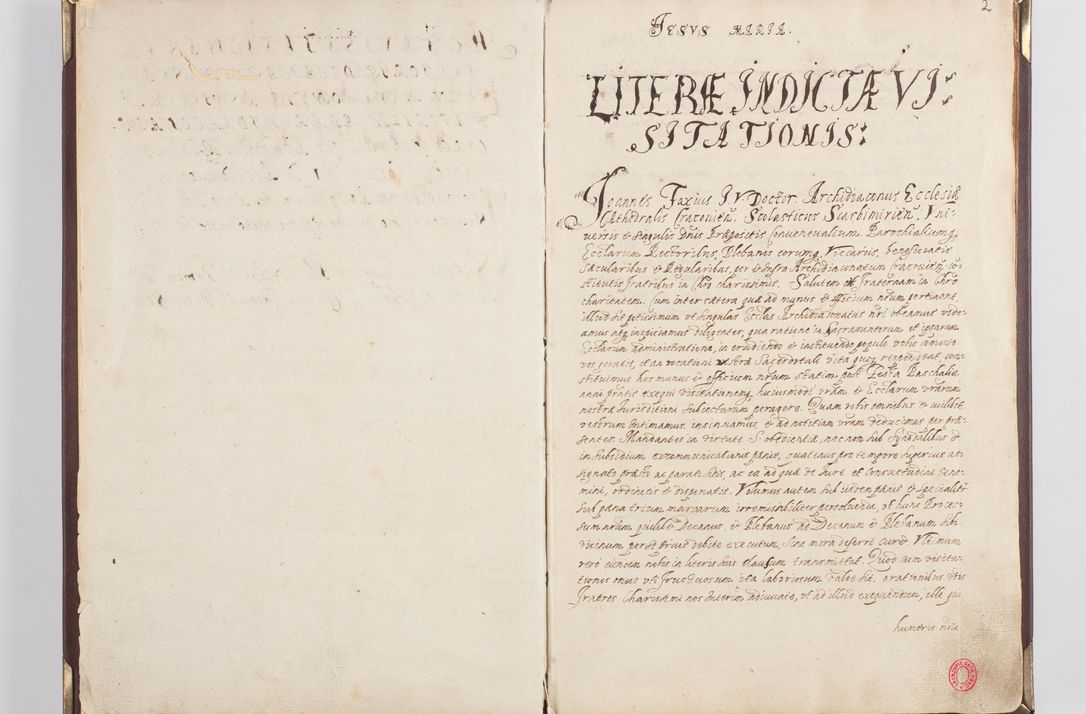 2
JESVS MARIA.
LITERÆ INDICTÆ VI-
SITATIONIS:
Joannes Foxius J. V. Doctor. Archidiaconus Ecclesiæ
Cathedralis Cracovień. Scolasticus Scarbimirień. Vni-
versis et singulis Dnis Præpositis Conventualium Parochialiumq
Ecclarum Rectoribus, Plebanis eorumq Viccariis, beneficiatis
sæcularibus et Regularibus, per et infra Archidiaconatum Cracovień. con-
stitutis fratribus in Chro charissimis. Salutem et fraternam in Chro
charitatem. Cum inter cætera quæ ad munus et officium nrum pertinent,
illud sit potissimum vt singulas Ecclas Archidiaconatus nri obeamus vide-
amus atq inspiciamus diligenter, qua ratione in Sacramentorum et ipsarum
Ecclarum administratione, in erudiendo et instituendo populo vobis comisso
vos geratis, et an vocationi vestræ Sacerdotali vita quoq respondeat, con-
stituimus hoc munus et officium nrum statim post Festa Paschalia
anni præntis exequi visitationemq huiusmodi vram et Ecclarum vrarum
nostræ Jurisditioni subiectarum peragere. Quam vobis omnibus et cuilibet
vestrum intimamus, insinuamus, et ad notitiam vram deducimus per præ-
sentes. Mandantes in virtute S. obedientiæ, nec non sub Synodalibus et
in subsidium excommunicationis pænis, quatenus pro tempore superius as-
signato præsto ac parati sitis, ac ea ad quæ de Jure et Consuetudine tene-
mini, ordinetis et disponatis. Volumus autem sub iisdem pænis et specialiter
sub pæna trium marcarum irremissibiliter persoluenda, vt hunc Proces-
sum nrum quilibet Decanus, et Plebanus ad Decanum et Plebanum sibi
vicinum per se prius debite executum, sine mora deferri curet. Vltimum
vero eundem nobis in literis his clausum transmittat. Quod cum visita-
tionis onus vti fructuosum ita laboriosum valde sit, orationibus vris
fratres Charissimi nos interim adiuuate, vt ad illud exequendum, ille qui
humeris nris